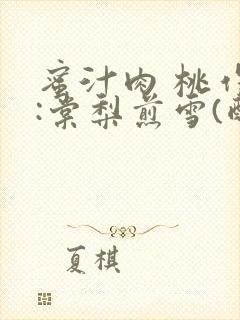 蜜汁肉桃作
:棠梨煎雪(
夏棋